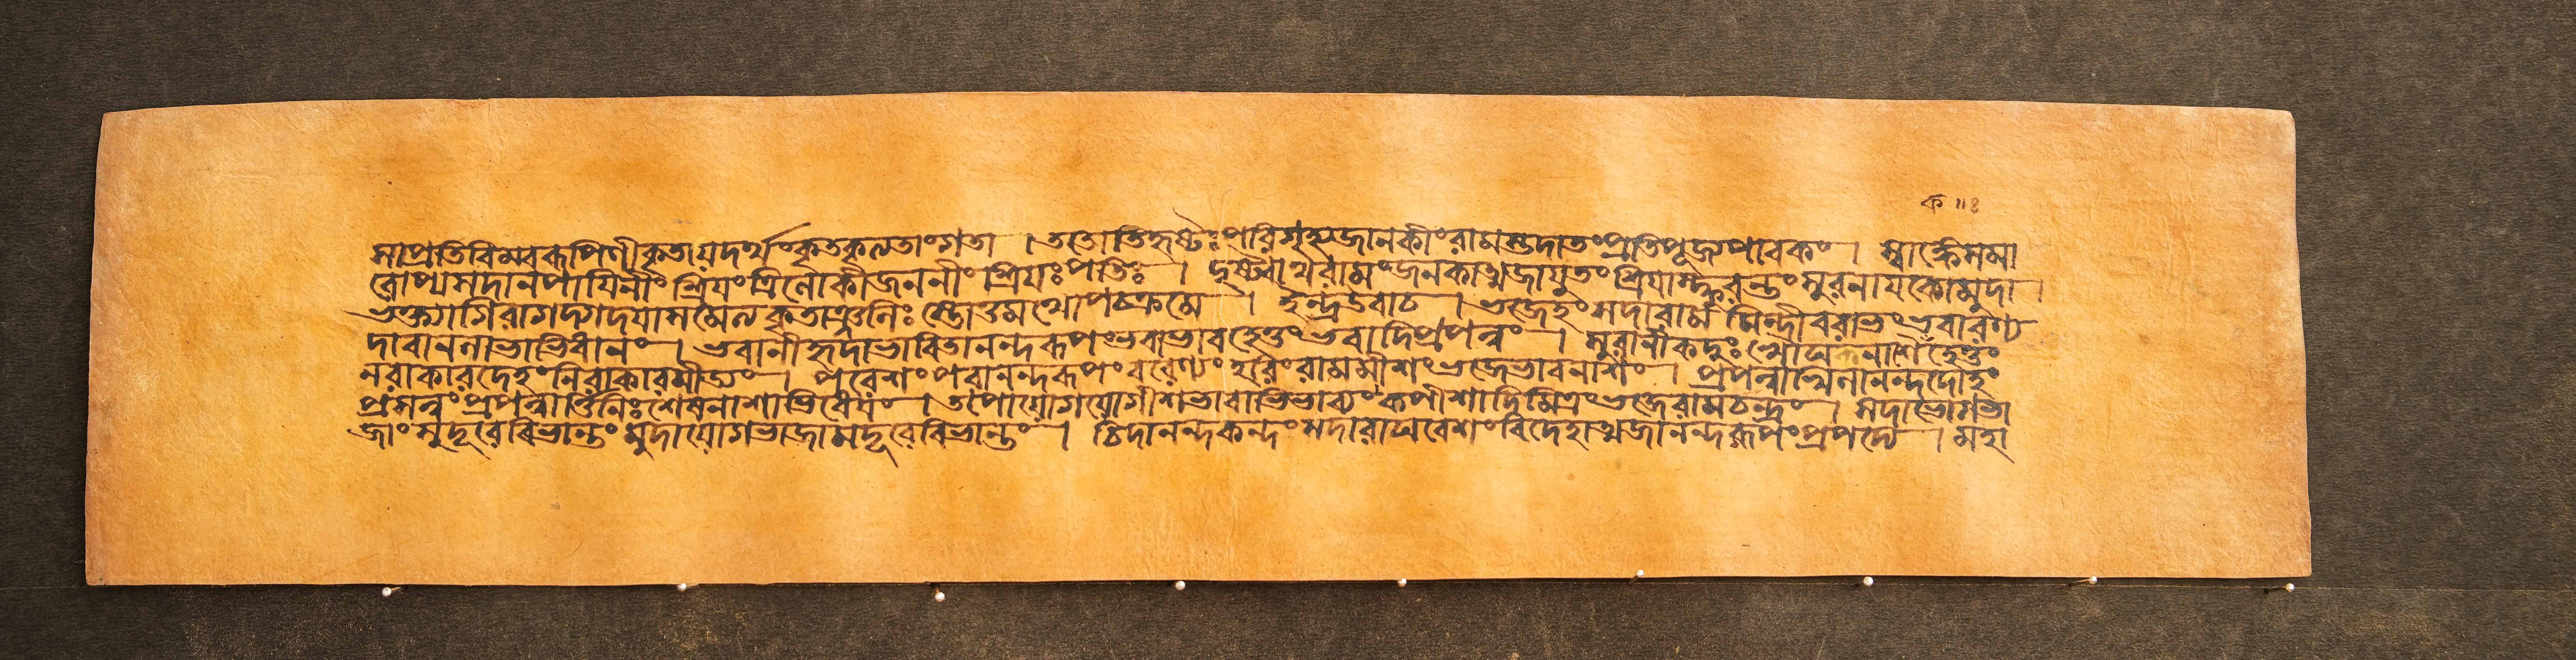 ক ॥ঃ
মাপ্রতিবিম্বরূপিণী কৃতা যদর্থং কৃতকৃত্যতাং গতা । ততোতিহৃষ্টঃ পরিগৃহ্য জানকীং রামস্তদা তং প্রতিপূজ্য পাবকং । স্বাঙ্কে সমা
রোপ্য সদানপায়িনীং শ্রিয়ং ত্রিলোকীজননীং শ্রিয়ঃ পতিঃ । দৃষ্ট্বাথ রামং জনকাত্মজাযুতং শ্রিয়া স্ফুরন্তং সুরনায়কো মুদা ।
ভক্ত্যা গিরা গদ্গদয়া সমেত্য কৃতাঞ্জলিঃ স্তোতুমথোপচক্রমে । ইন্দ্র উবাচ । ভজেহং সদা রামমিন্দীবরাভং ভবারণ্য
দাবানলাভাভিধানং । ভবানীহৃদা ভাবিতানন্দরূপং ভবাভাবহেতুং ভবাদিপ্রপন্নং । সুরানীকদুঃখৌঘনাশৈকহেতুং
নরাকারদেহং নিরাকারমীড্যং । পরেশং পরানন্দরূপং বরেণ্যং হরিং রামমীশং ভজে ভারনাশং । প্রপন্নাখিলানন্দদোহং
প্রসন্নং প্রপন্নার্তিনিঃশেষনাশাভিধেয়ং । তপোযোগযোগীশভাবাভিভাব্যং কপীশাদিমিত্রং ভজে রামচন্দ্রং । সদা ভোগভা
জাং সুদূরে বিভান্তং সদা যোগভাজামদূরে বিভান্তং । চিদানন্দকন্দং সদা রাঘবেশং বিদেহাত্মজানন্দরূপং প্রপদ্যে । মহা